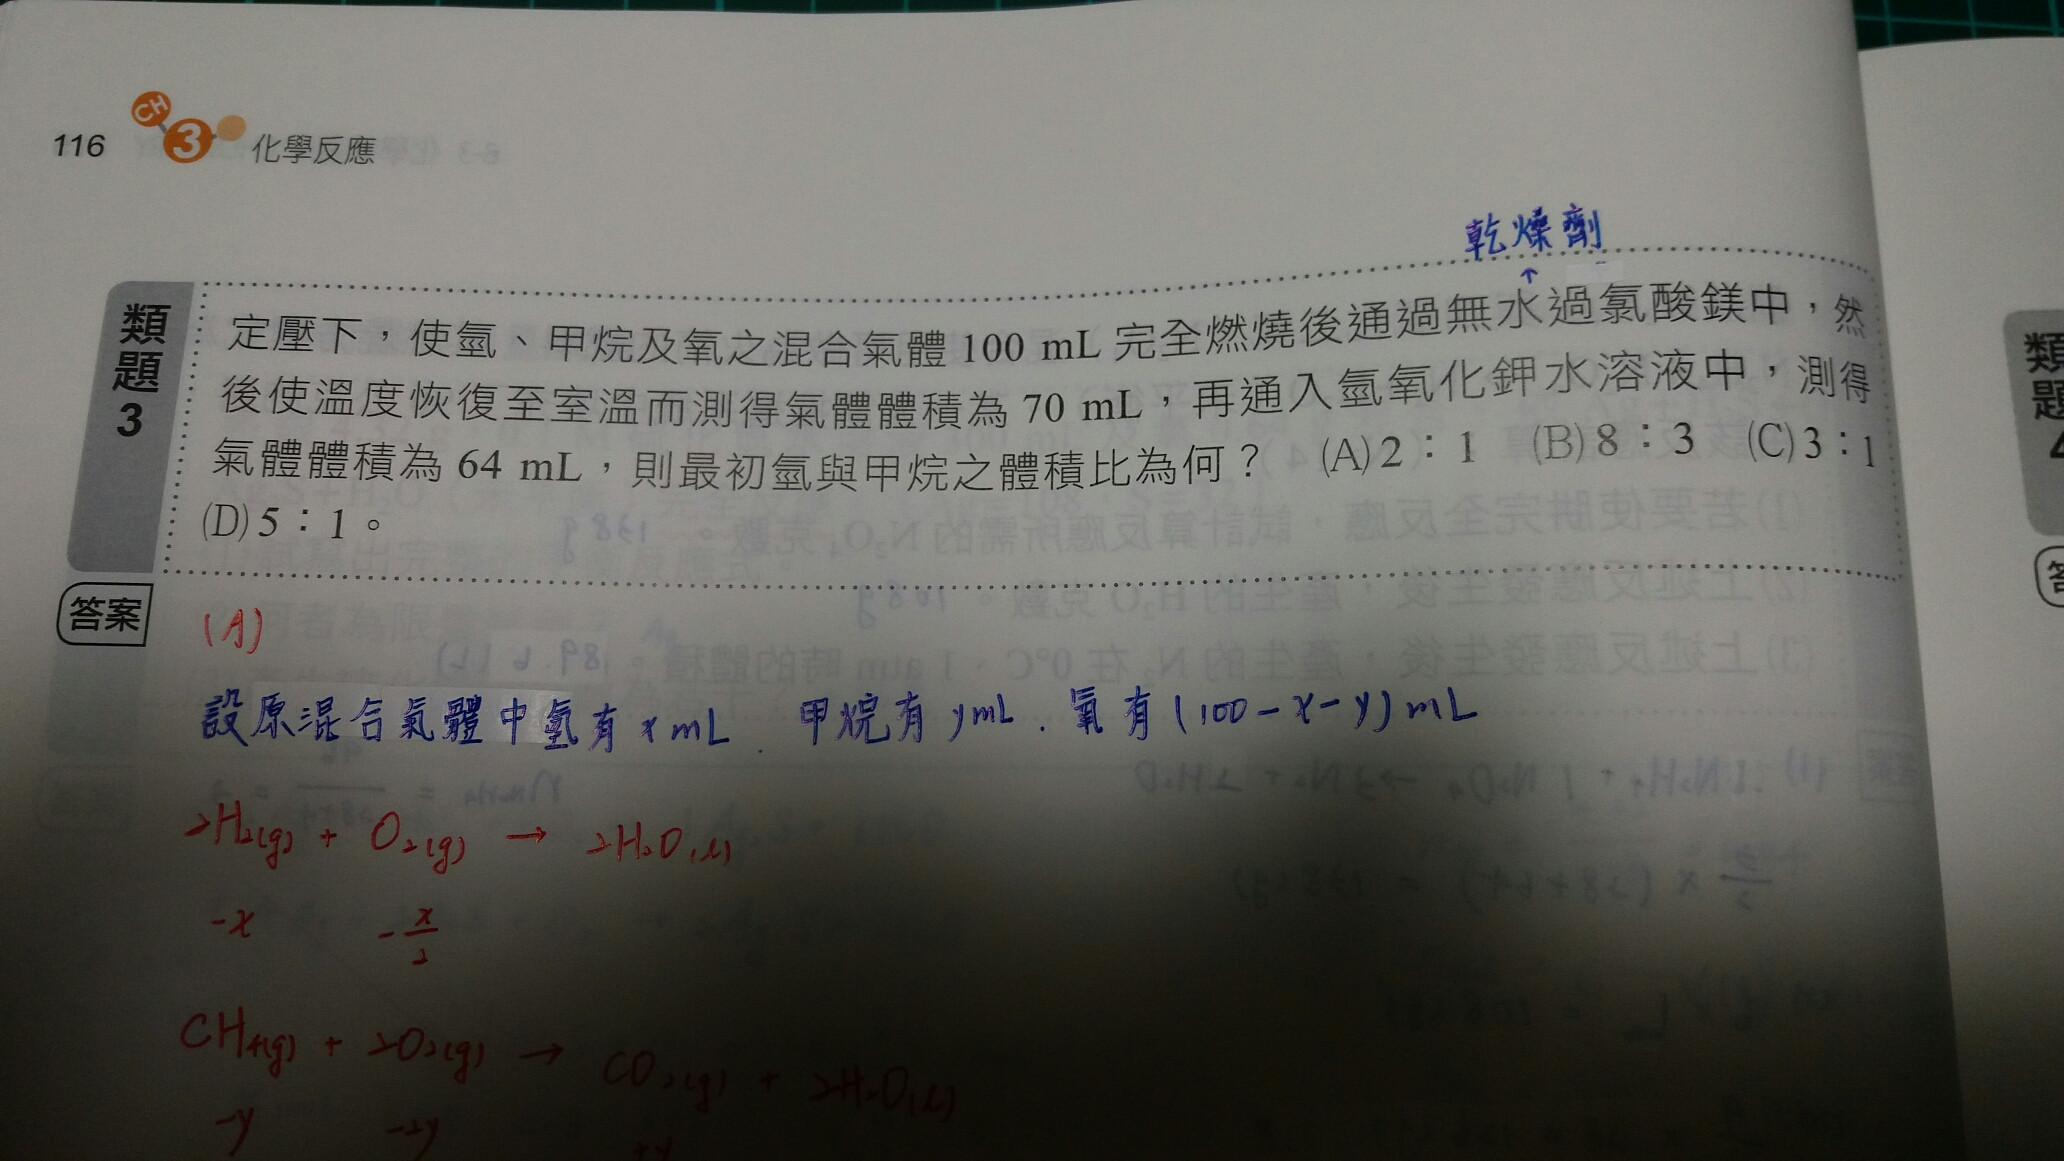 116 CH 3 化學反應
乾燥劑
↑
類題3
定壓下，使氫、甲烷及氧之混合氣體 100 mL 完全燃燒後通過無水過氯酸鎂中，然
後使溫度恢復至室溫而測得氣體體積為 70 mL，再通入氫氧化鉀水溶液中，測得
氣體體積為 64 mL，則最初氫與甲烷之體積比為何？ (A) 2：1 (B) 8：3 (C) 3：1
(D) 5：1。
答案
(A)
設原混合氣體中氫有 x mL . 甲烷有 y mL . 氧有 (100-x-y) mL
2H₂(g) + O₂(g) → 2H₂O(l)
-x -x/2
CH₄(g) + 2O₂(g) → CO₂(g) + 2H₂O(l)
-y -2y +y
類題